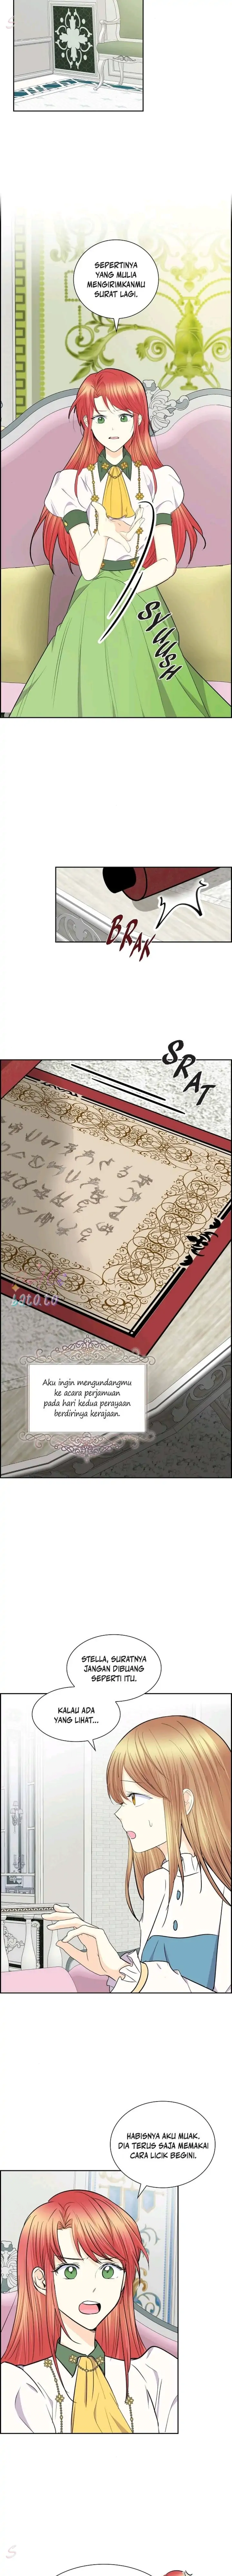 SEPERTINYA
YANG MULIA
MENGIRIMKANMU
SURAT LAGI.
SYUUSH
BRAK
SRAT
bato.to
Aku ingin mengundangmu
ke acara perjamuan
pada hari kedua perayaan
berdirinya kerajaan.
STELLA, SURATNYA
JANGAN DIBUANG
SEPERTI ITU.
KALAU ADA
YANG LIHAT...
HABISNYA AKU MUAK.
DIA TERUS SAJA MEMAKAI
CARA LICIK BEGINI.